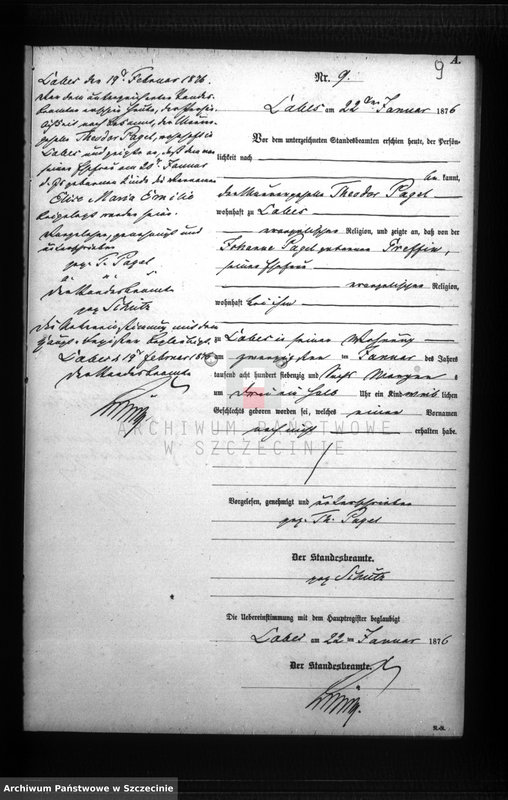 9
A.
Nr. 9.
Labes am 22ten Januar 1876
Vor dem unterzeichneten Standesbeamten erschien heute, der Persön-
lichkeit nach
be kannt,
der Maurergeselle Theodor Pagel
wohnhaft zu Labes
evangelischer Religion, und zeigte an, daß von der
Johanne Pagel geborenen Preffin,
seiner Ehefrau
evangelischer Religion,
wohnhaft bei ihm
zu Labes in seiner Wohnung
am zwanzigsten ten Januar des Jahres
tausend acht hundert siebenzig und sechs Morgens
um drei ein halb Uhr ein Kind weib lichen
Geschlechts geboren worden sei, welches einen Vornamen
noch nicht erhalten habe.
Vorgelesen, genehmigt und unterschrieben
gez. Th. Pagel
Der Standesbeamte.
gez Schütz
Die Uebereinstimmung mit dem Hauptregister beglaubigt
Labes am 22 ten Januar 1876
Der Standesbeamte.
Labes den 19. Februar 1876.
Vor dem unterzeichneten Standes-
beamten erschien heute, der Persön-
lichkeit nach bekannt, der Maurer-
geselle Theodor Pagel, wohnhaft in
Labes und zeigte an, daß dem von
seiner Ehefrau am 20. Januar
d. Js geborenen Kinde die Vornamen
Elise Maria Emilie
beigelegt worden seien.
Vorgelesen, genehmigt und
unterschrieben
gez. T. Pagel
Der Standesbeamte
gez Schütz
Die Uebereinstimmung mit dem
Haupt-register beglaubigt.
Labes d 19 Februar 1876
Der Standesbeamte
ARCHIWUM PAŃSTWOWE
W SZCZECINIE
Archiwum Państwowe w Szczecinie